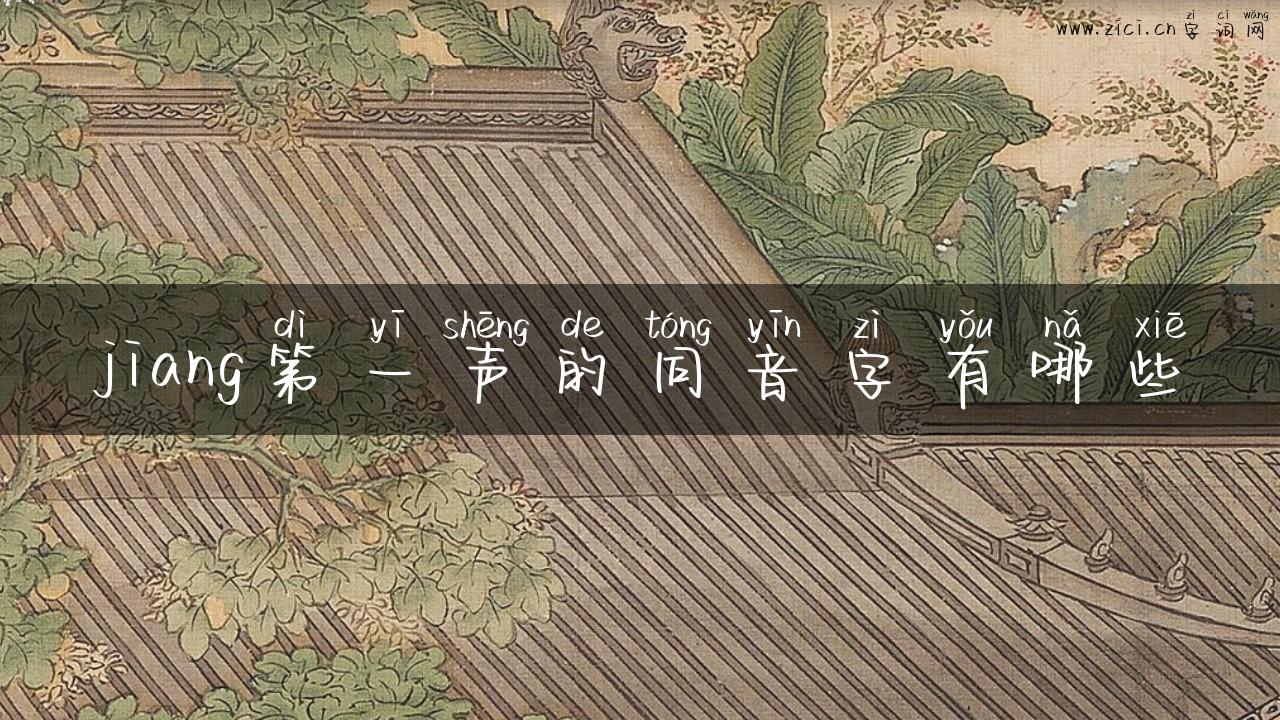 zì cí wǎng
www.zici.cn 字 词 网
dì yī shēng de tóng yīn zì yǒu nǎ xiē
jiang第 一 声 的 同 音 字 有 哪 些